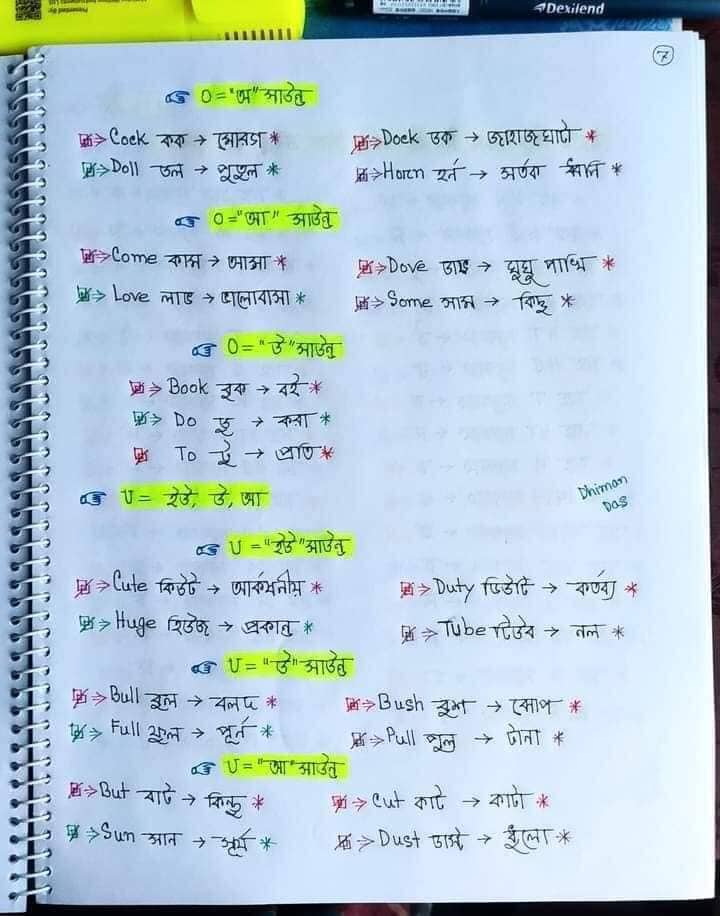 Dexilend
7
O = "অ" সাউন্ড
Cock কক → মোরগ * Dock ডক → জাহাজঘাটা *
Doll ডল → পুতুল * Horn হর্ন → সতর্ক ধ্বনি *
O = "আ" সাউন্ড
Come কাম → আসা * Dove ডাভ → ঘুঘু পাখি *
Love লাভ → ভালোবাসা * Some সাম → কিছু *
O = "উ" সাউন্ড
Book বুক → বই *
Do ডু → করা *
To টু → প্রতি *
U = ইউ, উ, আ
Dhiman
Das
U = "ইউ" সাউন্ড
Cute কিউট → আকর্ষনীয় * Duty ডিউটি → কর্তব্য *
Huge হিউজ → প্রকান্ড * Tube টিউব → নল *
U = "উ" সাউন্ড
Bull বুল → বলদ * Bush বুশ → ঝোপ *
Full ফুল → পূর্ন * Pull পুল → টানা *
U = "আ" সাউন্ড
But বাট → কিন্তু * Cut কাট → কাটা *
Sun সান → সূর্য * Dust ডাস্ট → ধুঁলো *